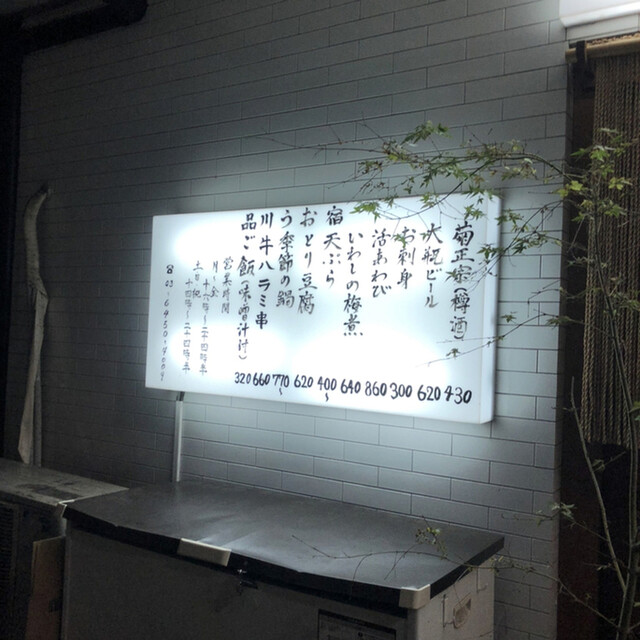 菊正宗(樽酒)
大瓶ビール
お刺身
活あわび
いわしの梅煮
宿天ぷら
おとり豆腐
う季節の鍋
川牛ハラミ串
品ご飯(味噌汁付)
営業時間
月〜金
十八時〜二十四時半
土日祝
十四時〜二十四時半
320 660 770〜 620 400〜 640 860 300 620 430